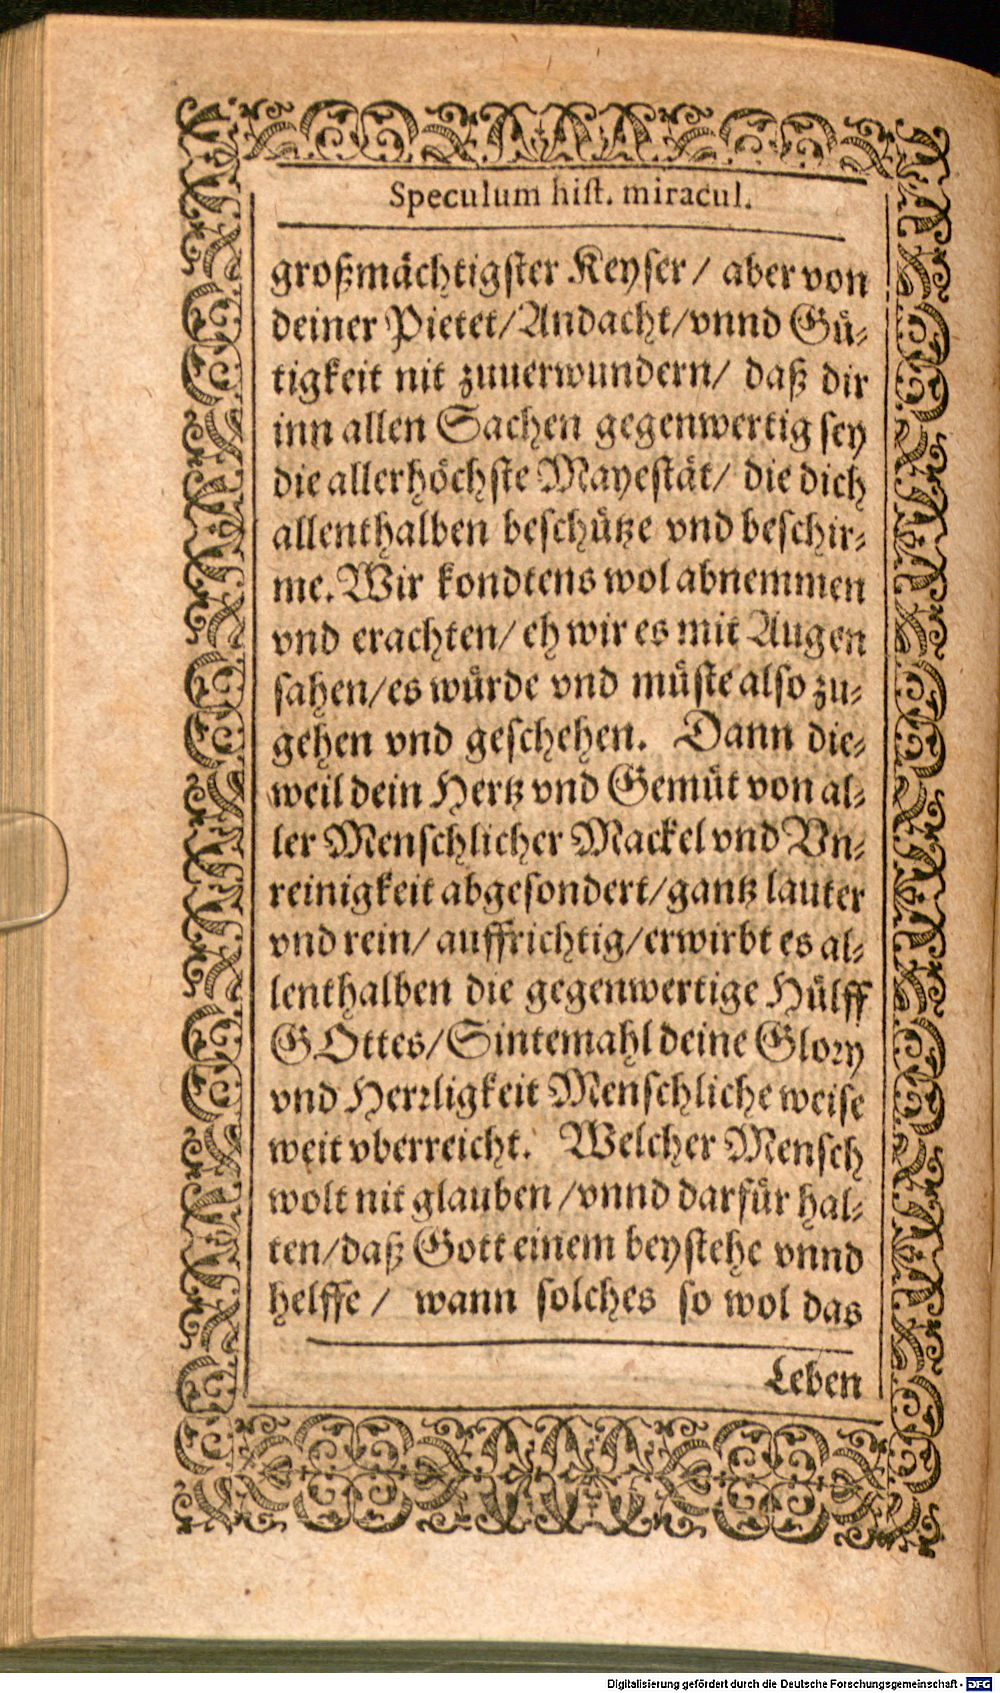 Speculum hiſt. miracul.
großmächtigſter Keyſer / aber von
deiner Pietet/Andacht/vnnd Gü-
tigkeit nit zuuerwundern/ daß dir
inn allen Sachen gegenwertig ſey
die allerhöchſte Mayeſtät/ die dich
allenthalben beſchütze vnd beſchir-
me. Wir kondtens wol abnemmen
vnd erachten/ eh wir es mit Augen
ſahen/es würde vnd müſte alſo zu-
gehen vnd geſchehen. Dann die-
weil dein Hertz vnd Gemüt von al-
ler Menſchlicher Mackel vnd Vn-
reinigkeit abgeſondert/gantz lauter
vnd rein/ auffrichtig/erwirbt es al-
lenthalben die gegenwertige Hülff
GOttes/Sintemahl deine Glory
vnd Herꝛligkeit Menſchliche weiſe
weit vberreicht. Welcher Menſch
wolt nit glauben /vnnd darfür hal-
ten/daß Gott einem beyſtehe vnnd
helffe / wann ſolches ſo wol das
Leben
Digitalisierung gefördert durch die Deutsche Forschungsgemeinschaft - DFG